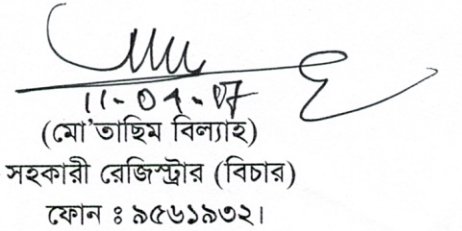 11-04-07
(মো'তাছিম বিল্যাহ)
সহকারী রেজিস্ট্রার (বিচার)
ফোন ঃ ৯৫৬১৯৩২।